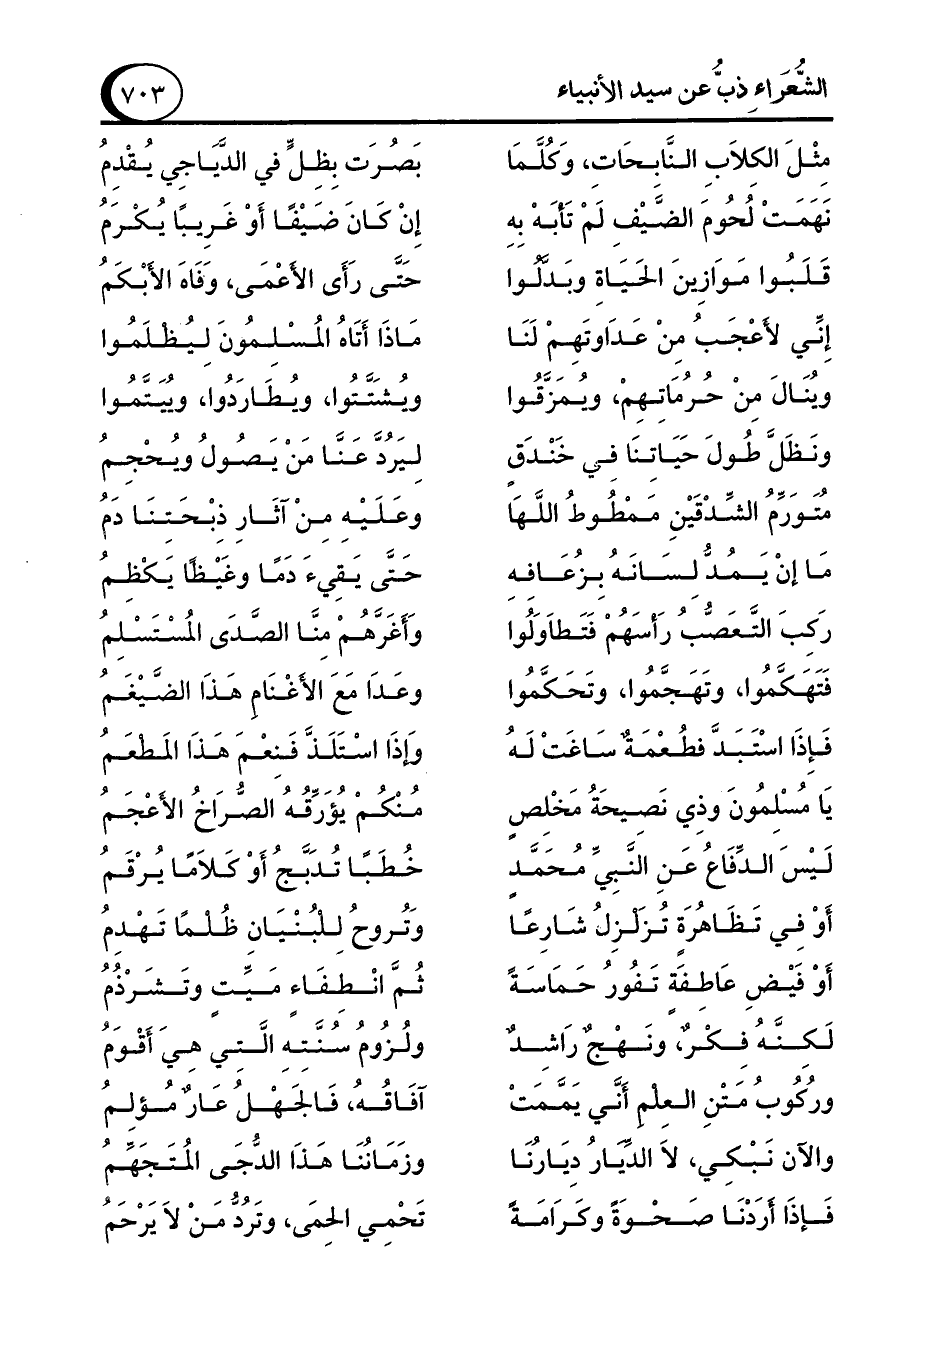 الشُّعَرَاءِ ذبٌّ عن سيد الأنبياء ٧٠٣
مثْلَ الكلابِ النَّابحَات، وَكُلَّمَا بَصُرَت بظلٍّ في الدَّيَاجي يُقْدمُ
نَهَمَتْ لُحُومَ الضَّيْف لَمْ تَأبَهْ به إنْ كَانَ ضَيْفًا أوْ غَريبًا يُكْرَمُ
قَلَبُوا مَوازينَ الحَيَاة وبَدَّلُوا حَتَّى رَأى الأعْمَى، وَفَاهَ الأبْكَمُ
إنِّي لأعْجَبُ منْ عَدَاوَتهمْ لَنَا مَاذَا أتَاهُ المُسْلمُونَ ليُظْلَمُوا
ويُنَالَ منْ حُرمَاتهمْ، ويُمَزَّقُوا ويُشَتَّتُوا، ويُطَارَدُوا، ويُيَتَّمُوا
ونَظَلَّ طُولَ حَيَاتنَا في خَنْدَقٍ ليَرُدَّ عَنَّا مَنْ يَصُولُ ويُحْجمُ
مُتَورِّمُ الشِّدْقَيْن مَمْطُوطُ اللَّهَا وعَلَيْه منْ آثَار ذَبْحَتنَا دَمُ
مَا إنْ يَمُدُّ لسَانَهُ بزُعَافه حَتَّى يَقيءَ دَمًا وغَيْظًا يَكْظمُ
رَكبَ التَّعَصُّبُ رَأسَهُمْ فَتَطَاوَلُوا وأغَرَّهُمْ منَّا الصَّدَى المُسْتَسْلمُ
فَتَهَكَّمُوا، وتَهَجَّمُوا، وتَحَكَّمُوا وعَدَا مَعَ الأغْنَامِ هَذَا الضَّيْغَمُ
فَإذَا اسْتَبَدَّ فَطُعْمَةٌ سَاغَتْ لَهُ وَإذَا اسْتَلَذَّ فَنعْمَ هَذَا المَطْعَمُ
يَا مُسْلمُونَ وَذي نَصيحَةُ مُخْلصٍ منْكُمْ يُؤَرِّقُهُ الصُّرَاخُ الأعْجَمُ
لَيْسَ الدِّفَاعُ عَن النَّبيِّ مُحَمَّدٍ خُطَبًا تُدَبَّجُ أوْ كَلامًا يُرْقَمُ
أوْ في تَظَاهُرَة تُزَلْزلُ شَارعًا وتَرُوحُ للْبُنْيَان ظُلْمًا تَهْدمُ
أوْ فَيْضَ عَاطفَة تَفُورُ حَمَاسَةً ثُمَّ انْطفَاء مَيِّت وتَشَرْذُمُ
لَكنَّهُ فكْرٌ، ونَهْجٌ رَاشدٌ ولُزُومُ سُنَّته الَّتي هيَ أقْوَمُ
ورُكُوبُ مَتْن العلْم أنَّي يَمَّمَتْ آفَاقُهُ، فَالجَهْلُ عَارٌ مُؤْلمُ
والآن نَبْكي، لاَ الدِّيَارُ ديَارُنَا وزَمَانُنَا هَذَا الدُّجَى المُتَجَهِّمُ
فَإذَا أرَدْنَا صَحْوَةً وكَرَامَةً تَحْمي الحمَى، وتَرُدُّ مَنْ لاَ يَرْحَمُ